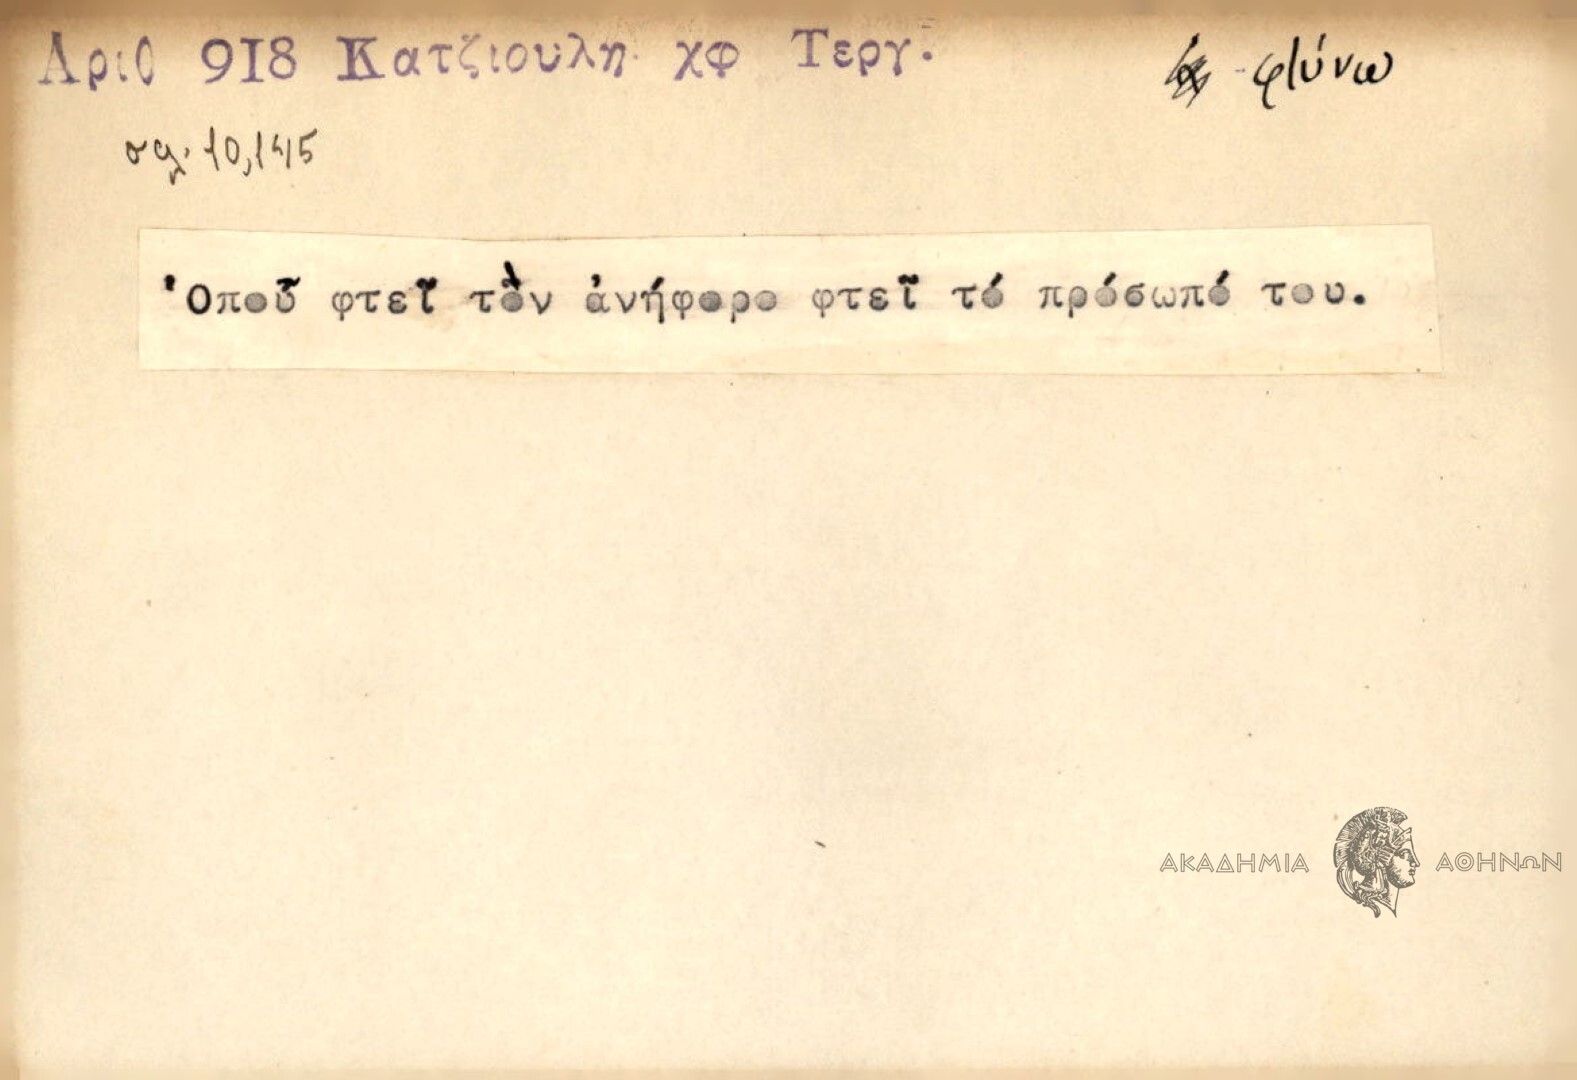 Αριθ 918 Κατζιουλη χφ Τεργ.
φτύνω
σελ. 10,145
Ὁποῦ φτεῖ τὸν ἀνήφορο φτεῖ τό πρόσωπό του.
ΑΚΑΔΗΜΙΑ ΑΘΗΝΩΝ